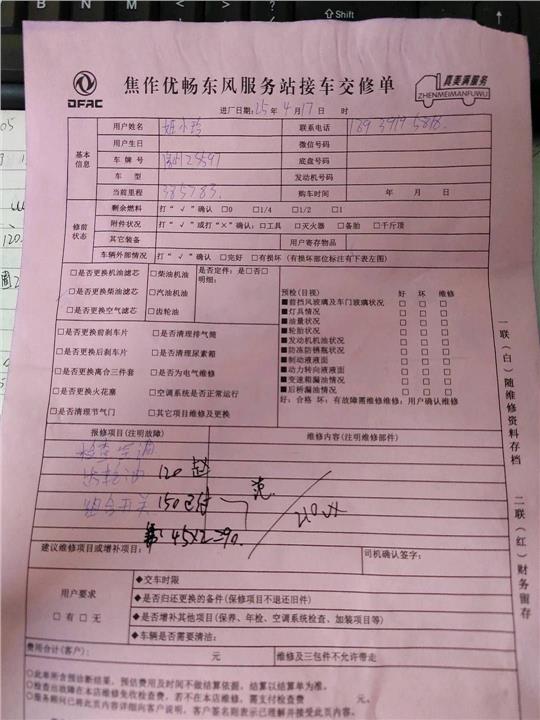 焦作优畅东风服务站接车交修单
DFAC
真美满服务
ZHENMEIMANFUWU
进厂日期：25年4月17日 时
基本信息
用户姓名 联系电话
用户生日 微信号码
车牌号 底盘号码
车 型 发动机号码
当前里程 385783. 购车时间 年 月 日
修前状态
剩余燃料 打“√”确认 □0 □1/4 □1/2 □1
附件状况 打“√”或打“×”确认：□工具 □灭火器 □备胎 □千斤顶
其它装备 用户寄存物品
车辆外部情况 打“√”确认 □完好 □有损坏（有损坏部位标注有下表左图）
□是否更换机油滤芯 □柴油机油 是否定件：是□否□
明细：
□是否更换柴油滤芯 □汽油机油
□是否更换空气滤芯 □齿轮油
□是否更换前刹车片 □是否清理排气筒
□是否更换后刹车片 □是否清理尿素箱
□是否更换离合三件套 □是否为电气维修
□是否更换火花塞 □空调系统是否正常运行
□是否清理节气门 □其它项目维修及更换
预检（目视） 好 坏 维修
■前挡风玻璃及车门玻璃状况 □ □ □
■灯具情况 □ □ □
■油量状况 □ □ □
■轮胎状况 □ □ □
■发动机机油状况 □ □ □
■防冻防锈瓶状况 □ □ □
■制动液液面 □ □ □
■动力转向液液面 □ □ □
■变速箱漏油情况 □ □ □
■后桥漏油情况 □ □ □
好：合格 坏：有故障需维修维修：用户确认维修
报修项目（注明故障） 维修内容（注明维修部件）
检查空调
齿轮油 120
组合开关 150 已付
45×2=90.
建议维修项目或增补项目： 司机确认签字：
用户要求
□有 □无
◆交车时限
◆是否归还更换的备件（保修项目不退还旧件）
◆是否增补其他项目（保养、年检、空调系统检查、加装项目等）
◆车辆是否需要清洁：
费用合计（客户）： 元 维修及三包件不允许带走
○此单所含预诊断结果，预估费用及时间不做结算依据，结算以结算单为准。
○检查出故障在本店维修免收检查费，若不在本店维修，需支付检查费 元。
○服务顾问已将此页内容详细向客户说明，客户签名则表示已理解并接受此页内容。
一联（白）随维修资料存档
二联（红）财务留存